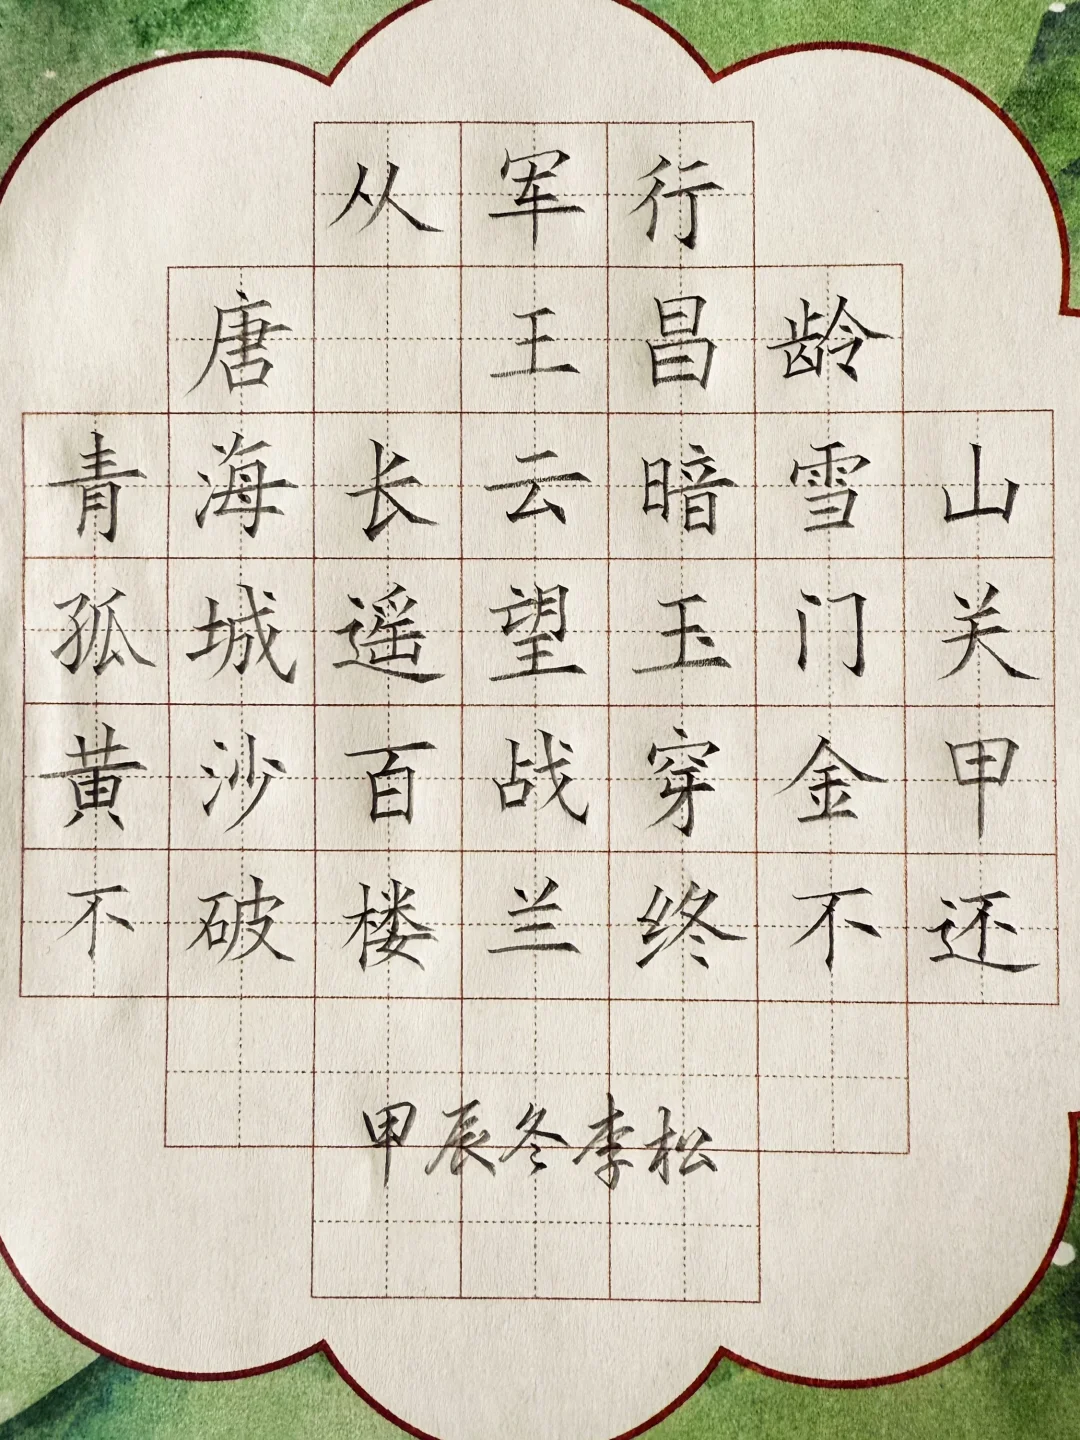 从军行
唐 王昌龄
青海长云暗雪山
孤城遥望玉门关
黄沙百战穿金甲
不破楼兰终不还
甲辰冬李松